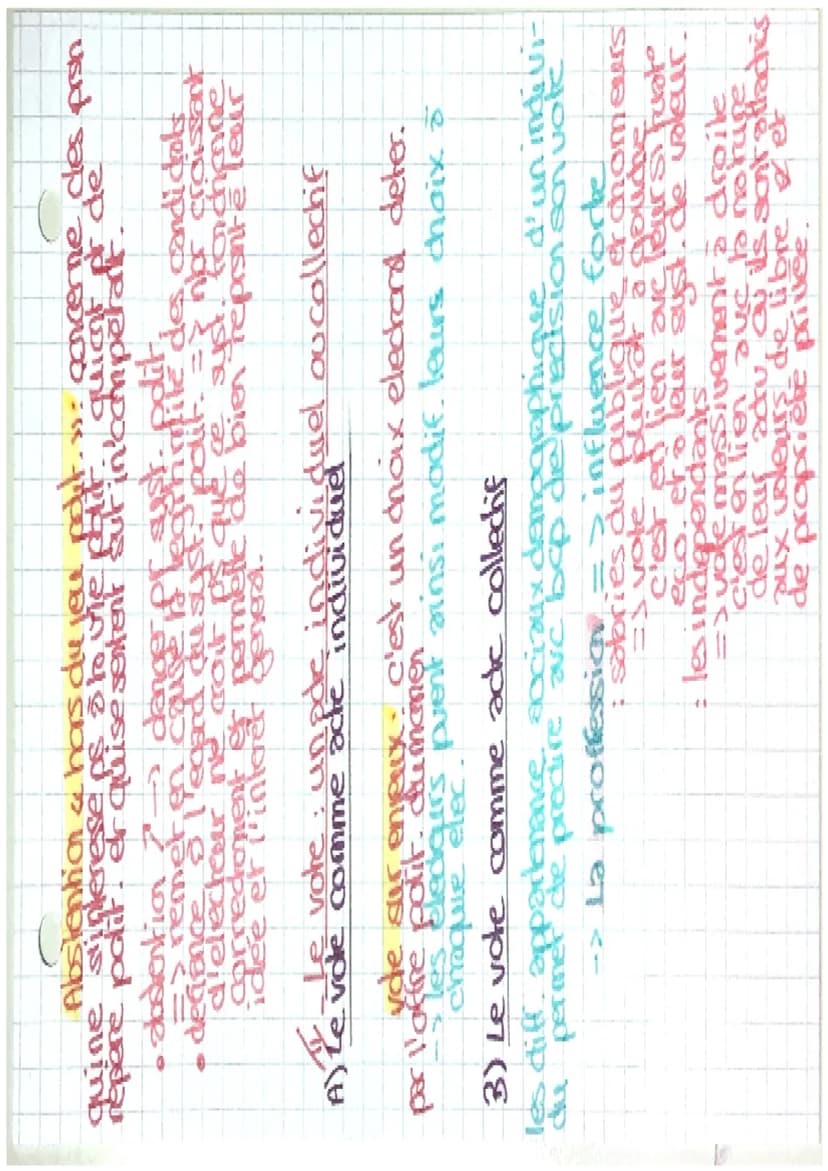 Abstention « hors du jeu polit. » : concerne des prsn
qui ne s'interesse ps à la vie polit. qui ont p de
répère polit. et qui se sentent sur incompétent.
• abstention ↗ → danger pr syst. polit.
=> remet en cause la légitimité des candidats
• défiance à l'égard du syst. polit. => nb croissant
d'electeur ne croit ps que ce syst. fonctionne
correctement et permette de bien repsnté leur
idée et l'intérêt général.
II - Le vote : un acte individuel ou collectif
A) Le vote comme acte individuel
vote sur enjeux : c'est un choix electoral déter.
par l'offre polit. du momen
-> les electeurs pvent ainsi modif. leurs choix à
chaque elec.
B) Le vote comme acte collectif
les diff. appartenance sociaux démographique d'un indivi-
du permet de prédire avc bcp de précision son vote
-> La proffession => influence forte
: salariés du publique et chomeurs
=> vote plutôt à gauche
c'est en lien avc leurs situat°
eco. et à leur syst. de valeur.
: les indépendants
=> vote massivement à droite
c'est en lien avc la nature
de leur actv où ils sont attachés
aux valeurs de libre et
de propriété privée.